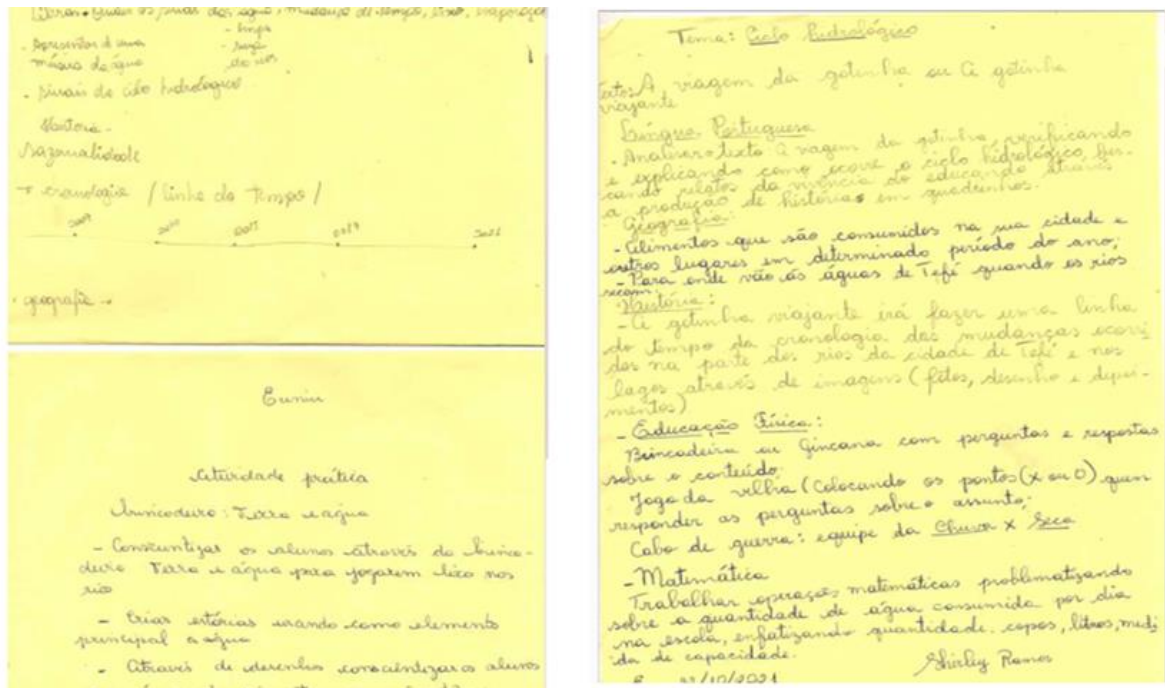 de tempo, lixo,
- Apresentar
- limpa
música da água
dos rios
- sinais do ciclo hidrológico
História -
Sazonalidade
→ cronologia / linha do tempo /
2021
- geografia →
Atividade prática
brincadeira: Terra e água
- Conscientizar os alunos através da brinca-
deira Terra e água para jogarem lixo nos
rios
- Criar estórias usando como elemento
principal a água
- Através de desenhos conscientizar os alunos
Tema: Ciclo hidrológico
Texto: A viagem da gotinha ou A gotinha
viajante
Língua Portuguesa
- Analisar o texto A viagem da gotinha, verificando
e explicando como ocorre o ciclo hidrológico, bus-
cando relatos da vivência do educando através
a produção de histórias em quadrinhos.
- Geografia:
- Alimentos que são consumidos na sua cidade e
outros lugares em determinado período do ano;
- Para onde vão as águas de Tefé quando os rios
secam.
História:
- A gotinha viajante irá fazer uma linha
do tempo da cronologia das mudanças ocorri
das na parte dos rios da cidade de Tefé e nos
lagos através de imagens (fotos, desenho e depoi-
mentos)
- Educação Física:
Brincadeira ou Gincana com perguntas e respostas
sobre o conteúdo;
Jogo da velha (Colocando os pontos (x ou 0) quem
responder as perguntas sobre o assunto;
Cabo de guerra: equipe da Chuva x Seca
- Matemática
Trabalhar operações matemáticas problematizando
sobre a quantidade de água consumida por dia
na escola, enfatizando quantidade. copos, litros, medi
da de capacidade.
Shirley Ramos
/10/2021